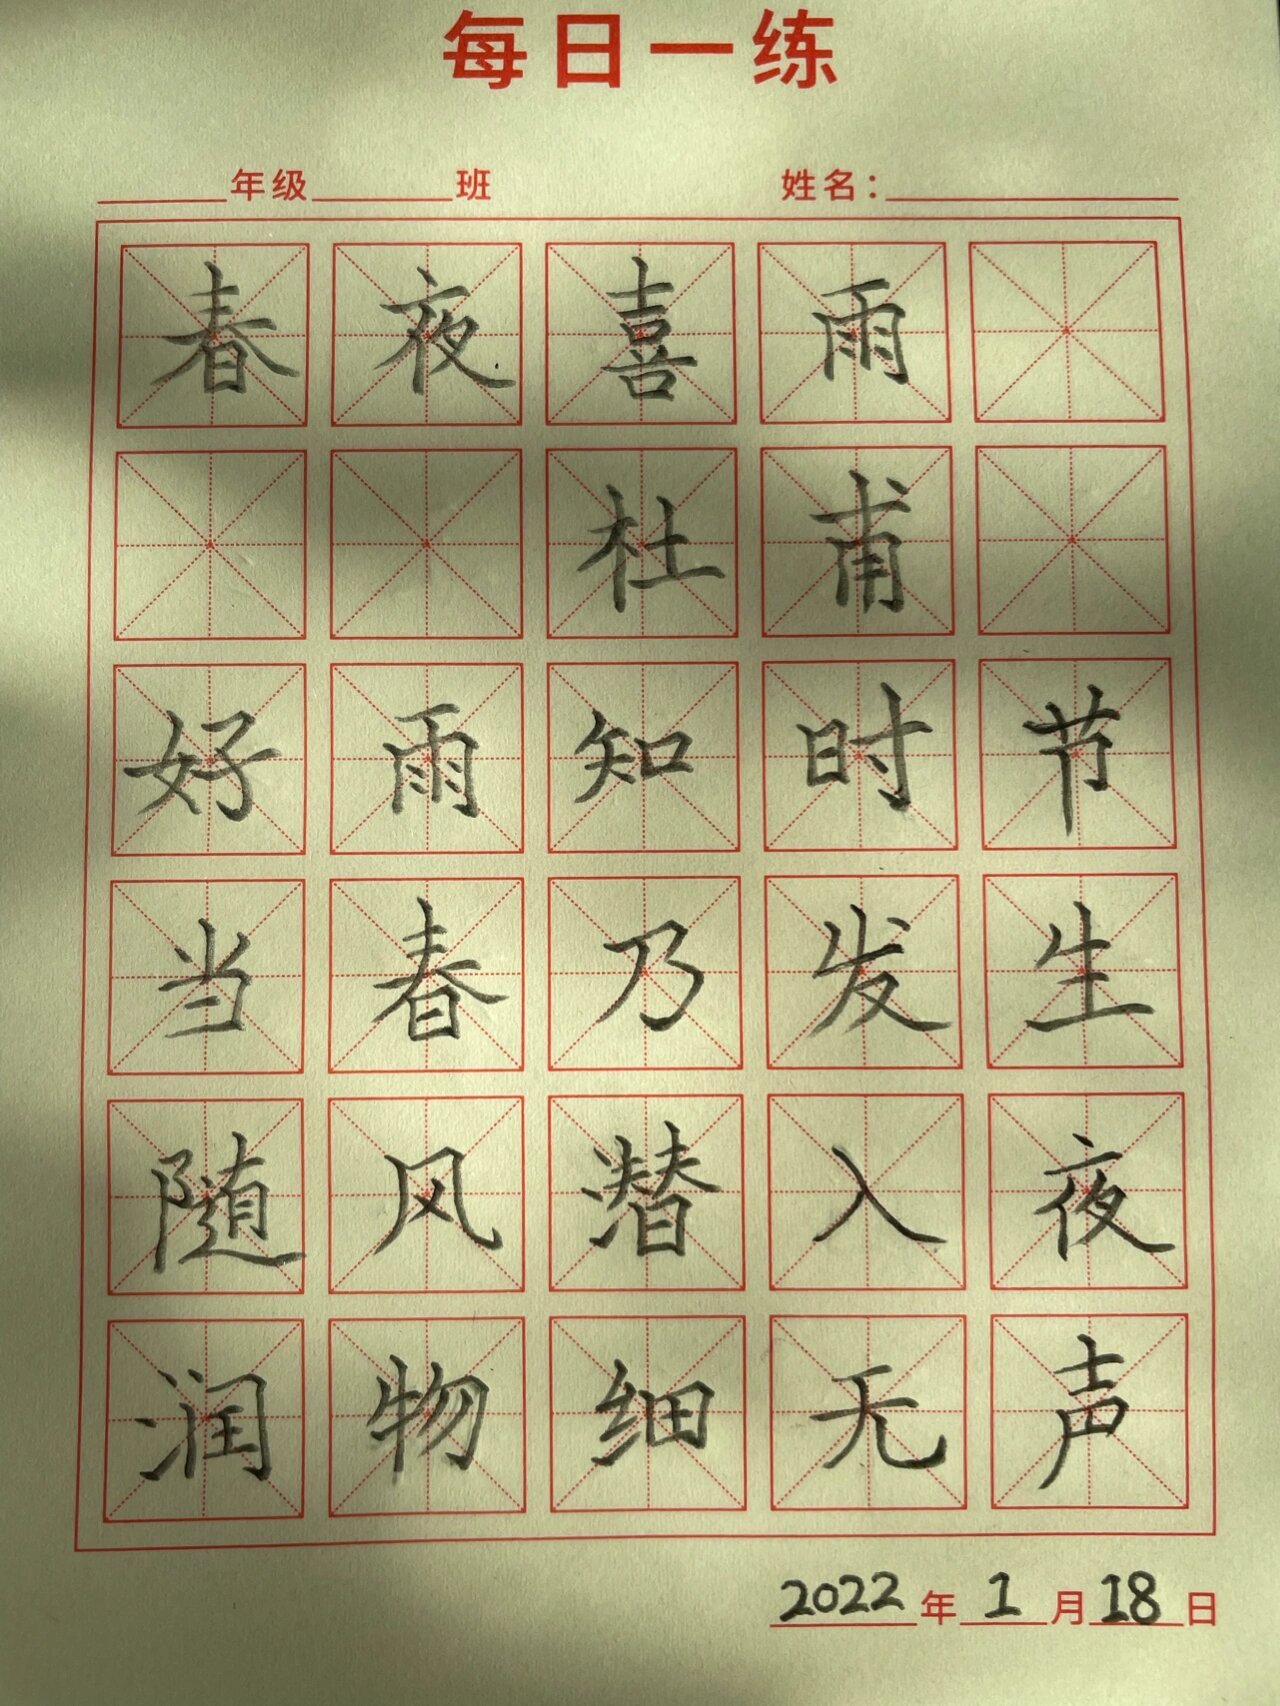 每日一练
年级 班 姓名：
春夜喜雨
杜甫
好雨知时节
当春乃发生
随风潜入夜
润物细无声
2022年1月18日